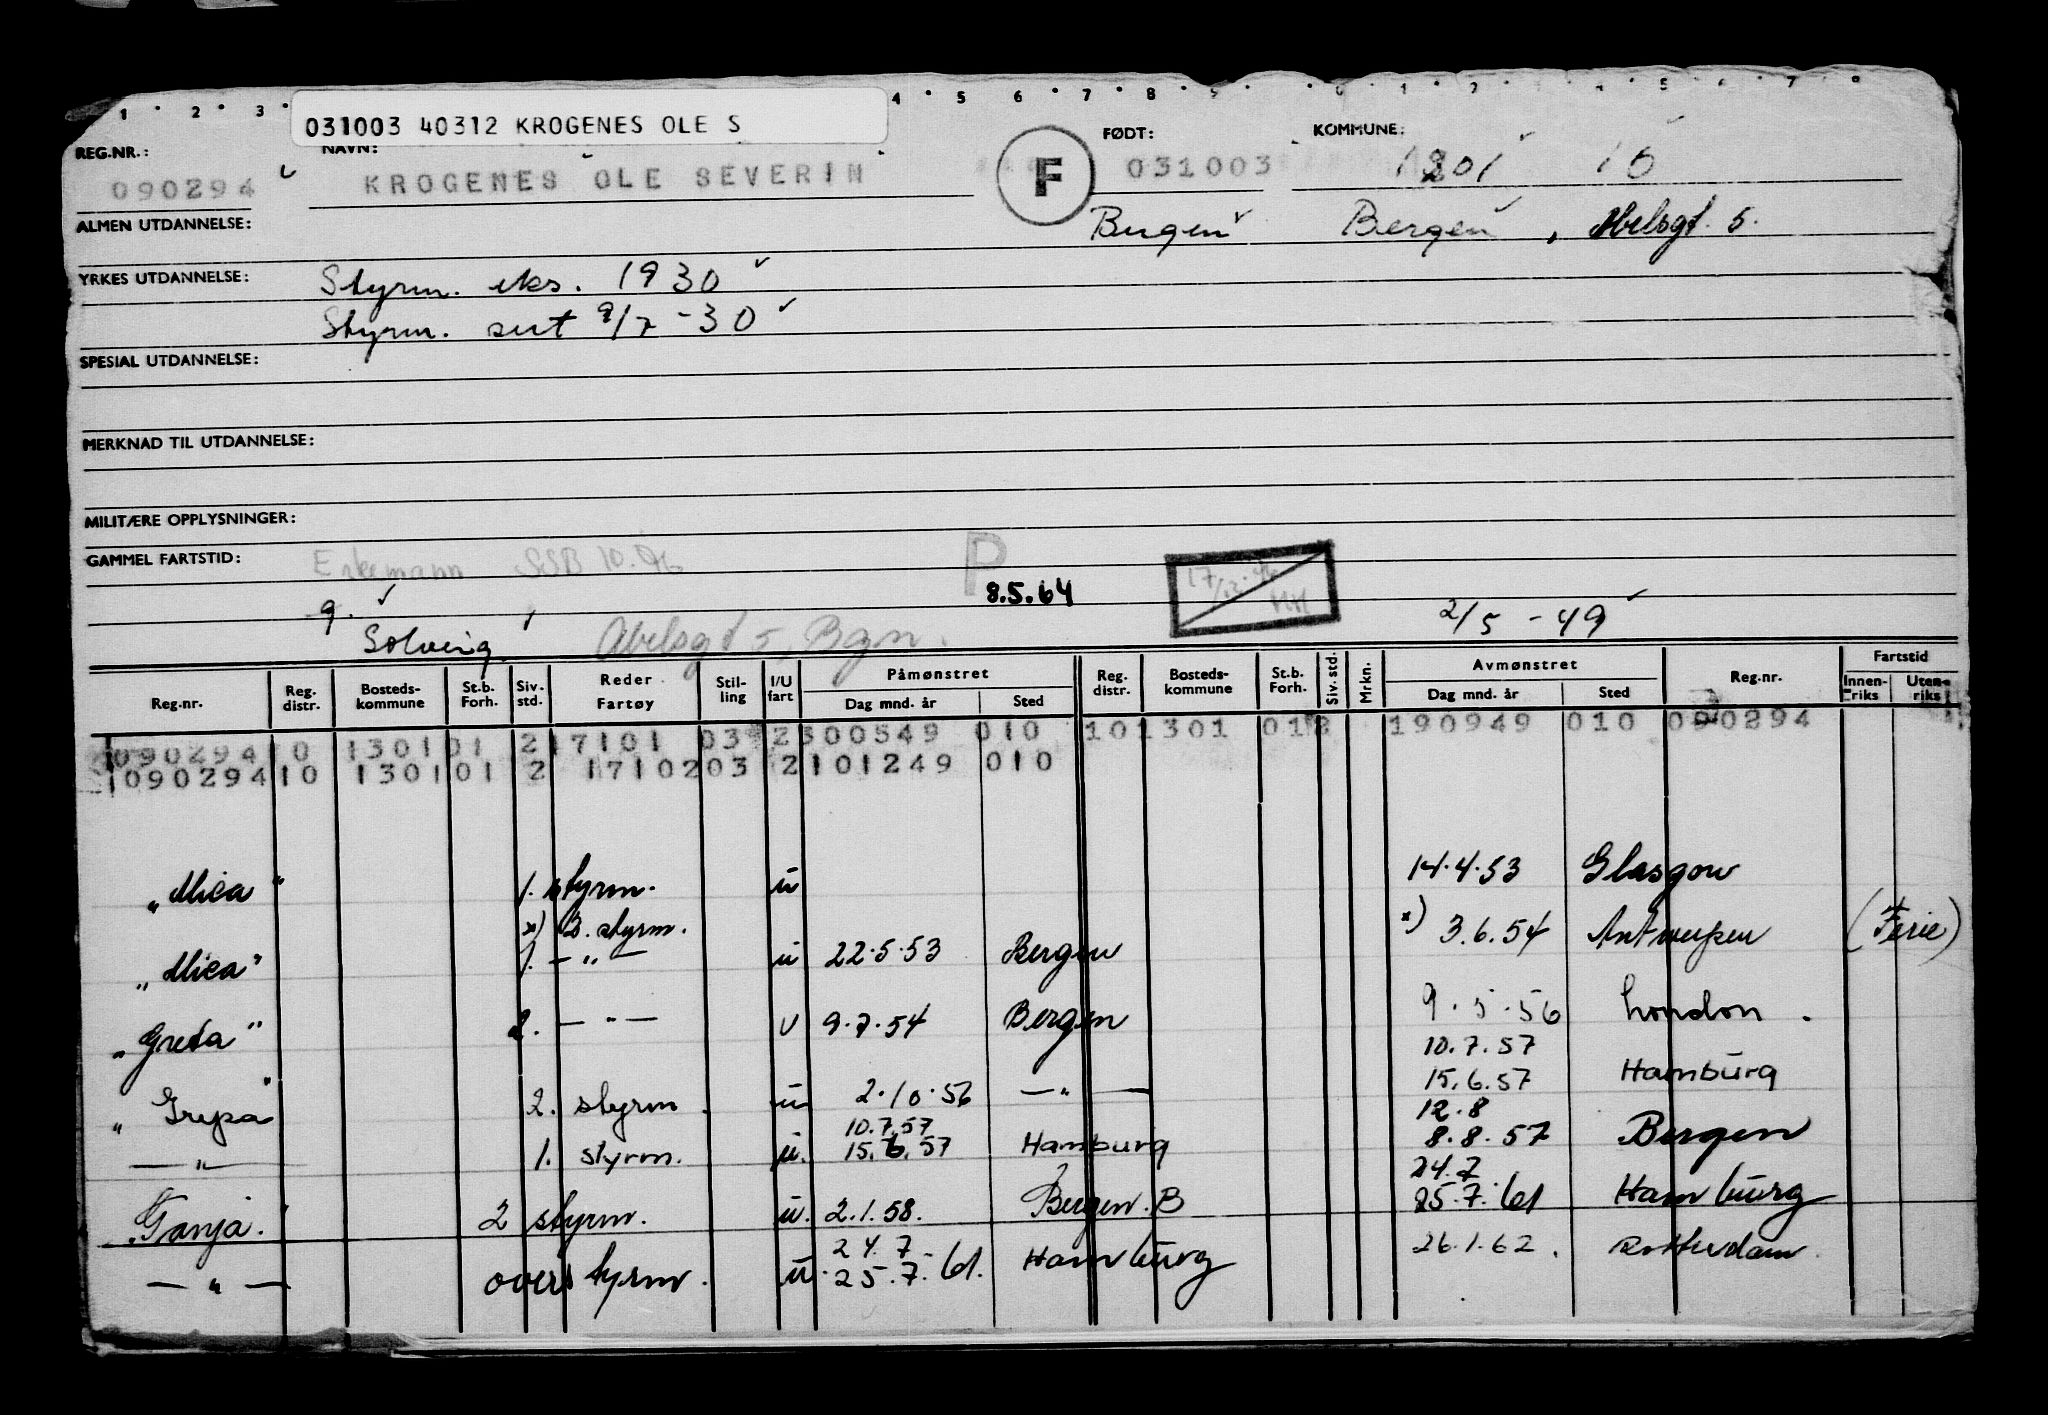 1 2 3 4 5 6 7 8 9 0 1 2 4 5 6 7 8
031003 40312 KROGENES OLE S
REG.NR.: NAVN: FØDT: KOMMUNE:
090294 KROGENES OLE SEVERIN F 031003 10
ALMEN UTDANNELSE: Bergen Bergen, Abelsgt. 5.
YRKES UTDANNELSE: Styrm. eks. 1930
Styrm. sert 9/7-30
SPESIAL UTDANNELSE:
MERKNAD TIL UTDANNELSE:
MILITÆRE OPPLYSNINGER:
GAMMEL FARTSTID: Enkemann SSB 10.96 P 8.5.64
g. Solveig Abelsgt 5, Bgn. 2/5 - 49
Reg.nr. Reg. distr. Bosteds- kommune St.b. Forh. Siv. std. Reder Fartøy Stil- ling I/U fart Påmønstret Dag mnd. år Sted Reg. distr. Bosteds- kommune St.b. Forh. Siv. std. Mrkn. Avmønstret Dag mnd. år Sted Reg.nr. Fartstid Innen- riks Uten- riks
090294 10 1301 01 2 17101 03 2 300549 010 10 1301 01 2 190949 010 090294
1090294 10 1301 01 2 17102 03 2 101249 010
"Mica" 1. styrm. u 14.4.53 Glasgow
x) 3. styrm.
"Mica" 1. - " - u 22.5.53 Bergen x) 3.6.54 Antwerpen (Ferie)
"Greta" 2. - " - u 9.7.54 Bergen 9.5.56 London.
10.7.57
"Grepa" 2. styrm. u 2.10.56 - " - 15.6.57 Hamburg
10.7.57 12.8
- " - 1. styrm. u. 15.6.57 Hamburg 8.8.57 Bergen
24.7
"Tanja." 2 styrm. u. 2.1.58. Bergen. B 25.7.61 Hamburg
24.7
- " - overstyrm. u. 25.7.61. Hamburg 26.1.62. Rotterdam.